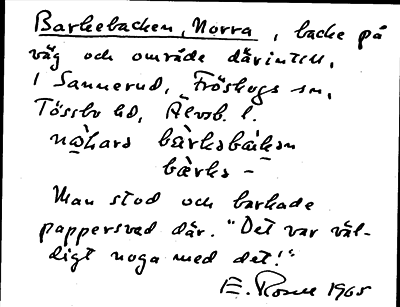 Barkebacken, Norra, backe på
väg och område därintill,
i Sannerud, Fröskogs sn,
Tössbo hd, Älvsb. l.
nò̱hara bàrkabàkan
bàrka –
Man stod och barkade
pappersved där. "Det var väl-
digt noga med det!"
E. Rosell 1965